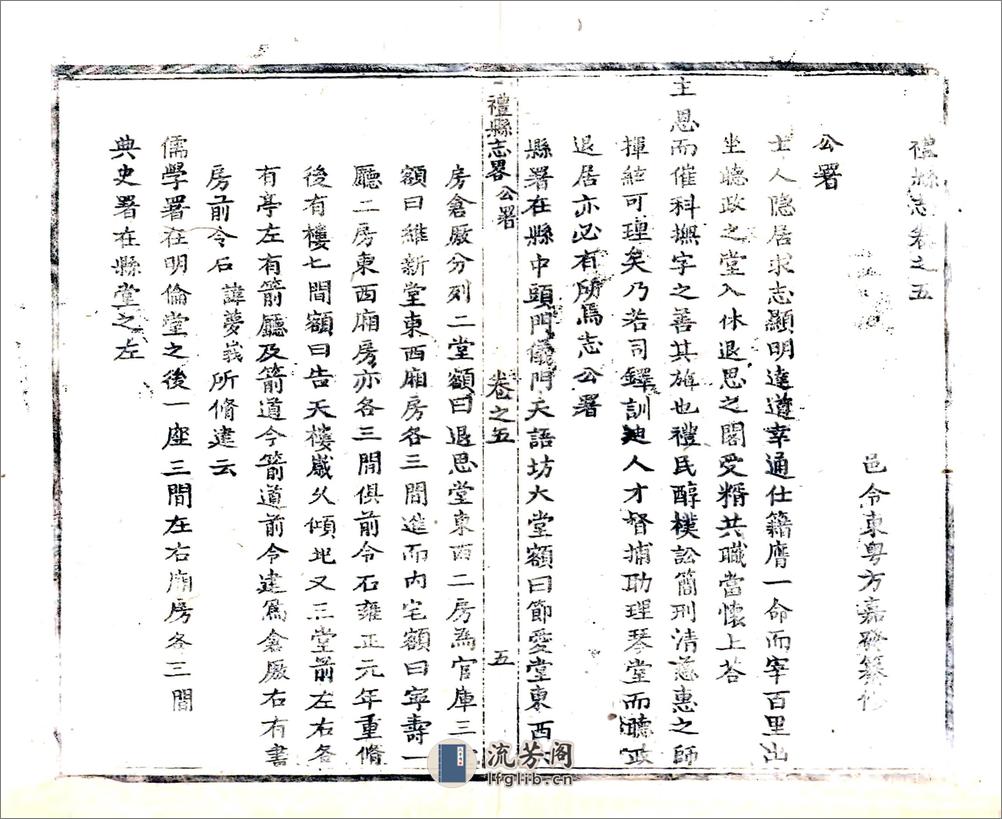 禮縣志卷之五
邑令東粵方嘉發纂修
公署
士人隱居求志顯明達道幸通仕籍膺一命而宰百里出
坐聽政之堂入休退思之閣受糈共職當懷上荅
主恩而催科撫字之善其旃也禮民醇樸訟簡刑清慈惠之師
揮絃可理矣乃若司鐸訓迪人才督捕助理琴堂而聽政
退居亦必有所爲志公署
縣署在縣中頭門儀門天語坊大堂額曰節愛堂東西六
禮縣志畧 公署 卷之五 五
房倉厫分列二堂額曰退思堂東西二房為官庫三堂
額曰維新堂東西廂房各三間進而内宅額曰寧壽一
廳二房東西廂房亦各三間俱前令石雍正元年重脩
後有樓七間額曰告天樓歲久傾圮又三堂前左右各
有亭左有箭廳及箭道今箭道前令建爲倉厫右有書
房前令石諱夢峩所脩建云
儒學署在明倫堂之後一座三間左右廂房各三間
典史署在縣堂之左
流芳阁
lfglib.cn